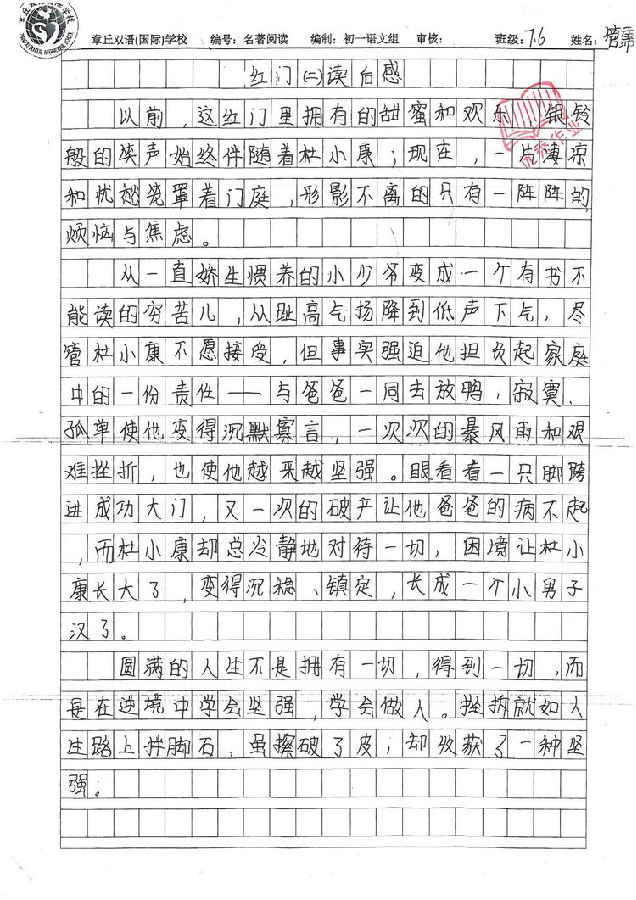 章丘双语(国际)学校 编号：名著阅读 编制：初一语文组 审核： 班级：7.6 姓名：
红门㈡读后感
以前，这红门里拥有的甜蜜和欢乐，银铃
般的笑声始终伴随着杜小康；现在，一片凄凉
和忧愁笼罩着门庭，形影不离的只有一阵阵的
烦恼与焦虑。
从一直娇生惯养的小少爷变成一个有书不
能读的穷苦儿，从趾高气扬降到低声下气，尽
管杜小康不愿接受，但事实强迫他担负起家庭
中的一份责任——与爸爸一同去放鸭，寂寞、
孤单使他变得沉默寡言，一次次的暴风雨和艰
难挫折，也使他越来越坚强。眼看着一只脚跨
进成功大门，又一次的破产让他爸爸的病不起
，而杜小康却总冷静地对待一切，困境让杜小
康长大了，变得沉稳、镇定，长成一个小男子
汉了。
圆满的人生不是拥有一切，得到一切，而
是在逆境中学会坚强，学会做人。挫折就如人
生路上拌脚石，虽擦破了皮；却收获了一种坚
强。